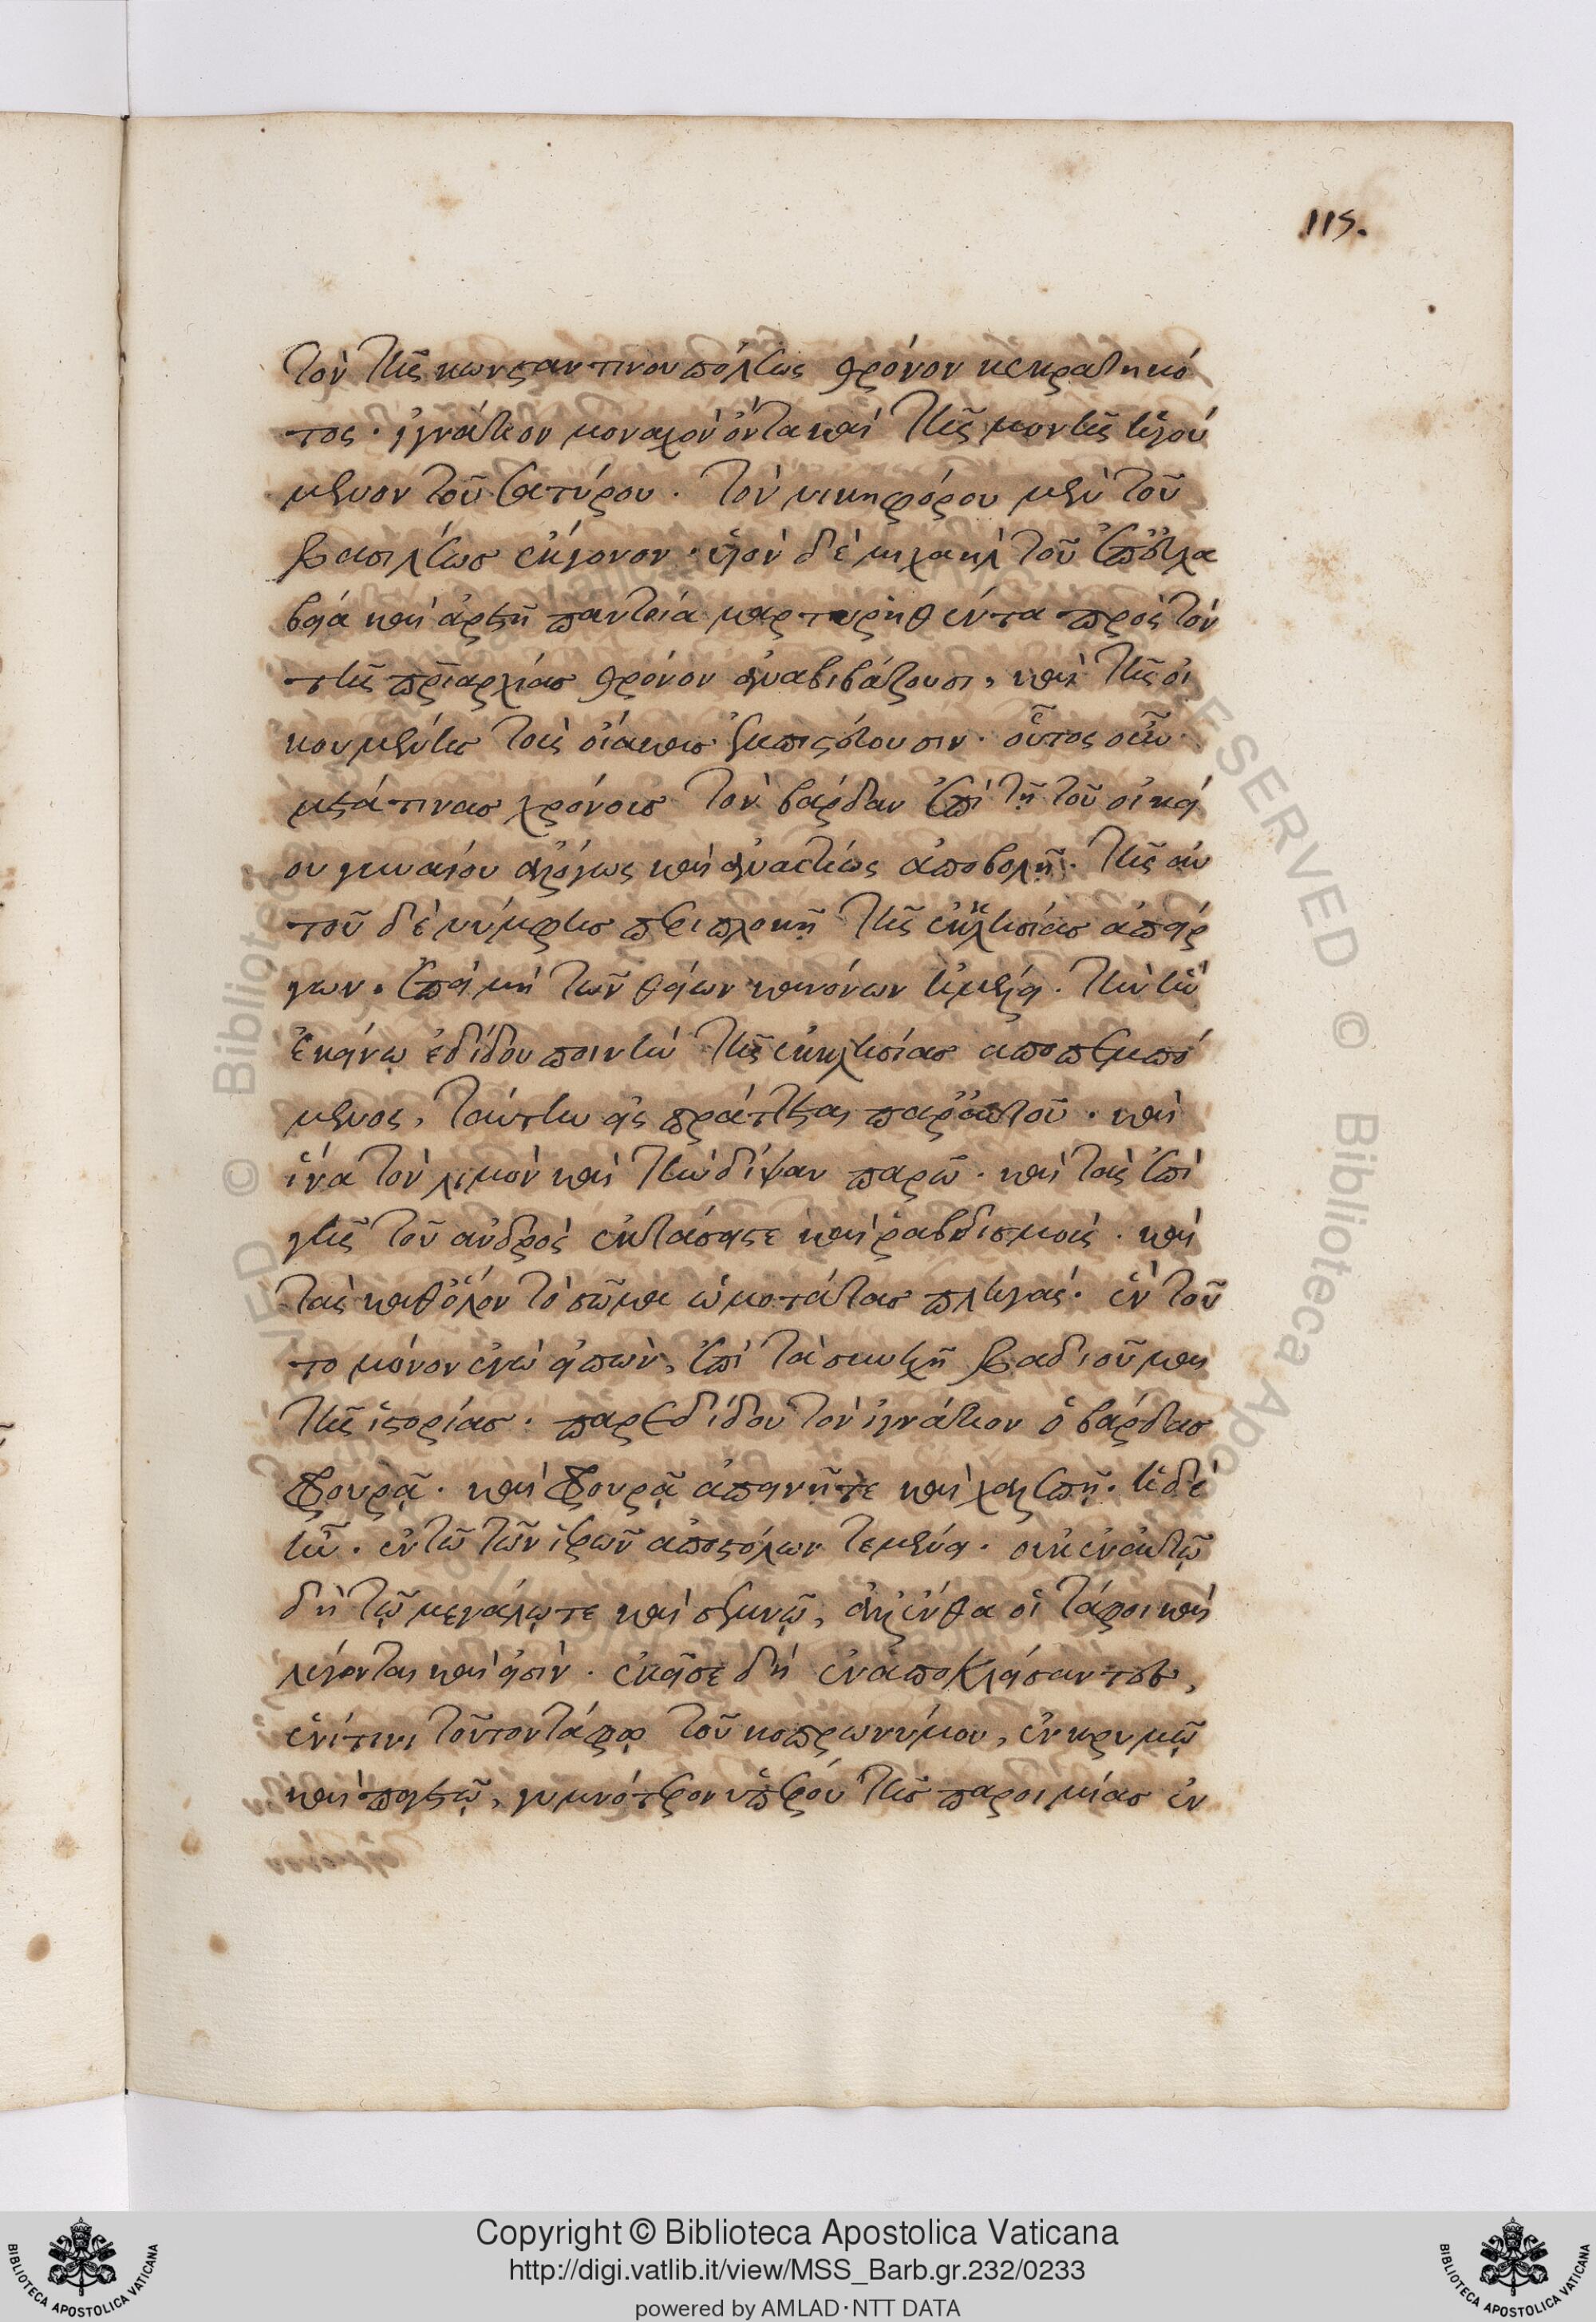 115.
τὸν τῆς κωνσταντινουπόλεως θρόνον κεκρατηκό
τος· ἰγνάτιον μοναχὸν ὄντα καὶ τῆς μονῆς ἡγού
μενον τοῦ σατύρου. τὸν νικηφόρου μὲν τοῦ
βασιλέως ἔκγονον· υἱὸν δὲ μιχαὴλ τοῦ
καὶ ἀρετῇ παντοία μαρτυρηθέντα πρὸς τὸν
τῆς πριαρχίας θρόνον ἀναβιβάζουσι, καὶ τῆς οἰ
κουμένης τοὺς οἴακας ἐμπιστεύουσιν. οὗτος οὖν
μετά τινας χρόνους τὸν βάρδαν ἐπὶ τῇ τοῦ οἰκεί
ου γυναίου ἀλόγως καὶ ἀναιτίως ἀποβολῇ. τῆς αὐ
τοῦ δὲ νύμφης περιπλοκῇ τῆς ἐκκλησίας ἀπεῖρ
γων. ἐπεὶ μὴ τῶν θείων κανόνων ἠμέλει. τὴν ἣν
ἐκείνῳ ἐδίδου ποινὴν τῆς ἐκκλησίας ἀποπεμπό
μενος, ταύτην εἰσπράττεται παρ' αὐτοῦ. καὶ
ἵνα τὸν λιμὸν καὶ τὴν δίψαν παρῶ. καὶ τὰς ἐπὶ
γῆς τοῦ ἀνδρὸς ἐκτάσεις τε καὶ ῥαβδισμούς. καὶ
τὰς καθ' ὅλον τὸ σῶμα ὠμοτάτας πληγάς. ἓν τοῦ
το μόνον ἐγὼ εἰπὼν, ἐπὶ τὰ συνεχῆ βαδιοῦμαι
τῆς ἱστορίας. παρεδίδου τὸν ἰγνάτιον ὁ βάρδας
φρουρᾷ. καὶ φρουρᾷ ἀπηνῆ τε καὶ χαλεπῇ. ἡ δὲ
ἦν. ἐν τῶ τῶν ἱερῶν ἀποστόλων τεμένει. οὐκ ἐν αὐτῷ
δὴ τῷ μεγάλῳ τε καὶ σεμνῷ, ἀλλ' ἔνθα οἱ τάφοι καὶ
λέγονται καὶ εἰσίν. ἐκεῖσε δὴ ἐναποκλείσαντες,
ἐνί τινι τούτων τάφῳ τοῦ κοπρωνύμου, ἐν κρυμῷ
καὶ παγετῷ, γυμνότερον ὑπέρου τῆς παροιμίας ἐν
Copyright © Biblioteca Apostolica Vaticana
http://digi.vatlib.it/view/MSS_Barb.gr.232/0233
powered by AMLAD·NTT DATA